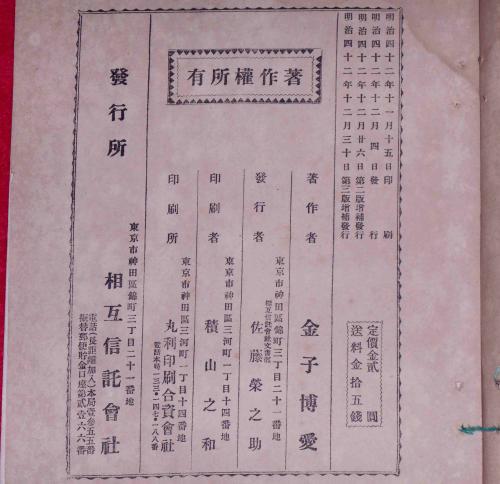 明治四十二年十一月十五日印刷
明治四十二年十二月四日發行
明治四十二年十二月廿六日第二版增補發行
明治四十二年十二月三十日第三版增補發行
定價金貳圓
送料金拾五錢
著作權所有
著作者 金子博愛
東京市神田區錦町三丁目二十一番地
相互信託會
發行者 佐藤榮之助
東京市神田區三河町一丁目十四番地
印刷者 積山之和
東京市神田區三河町一丁目十四番地
印刷所 丸利印刷合資會社
電話本局
發行所
東京市神田區錦町三丁目二十一番地
相互信託會社
電話(長距離加入)本局壹參五五番
振替郵便貯金口座第貳壹六六番